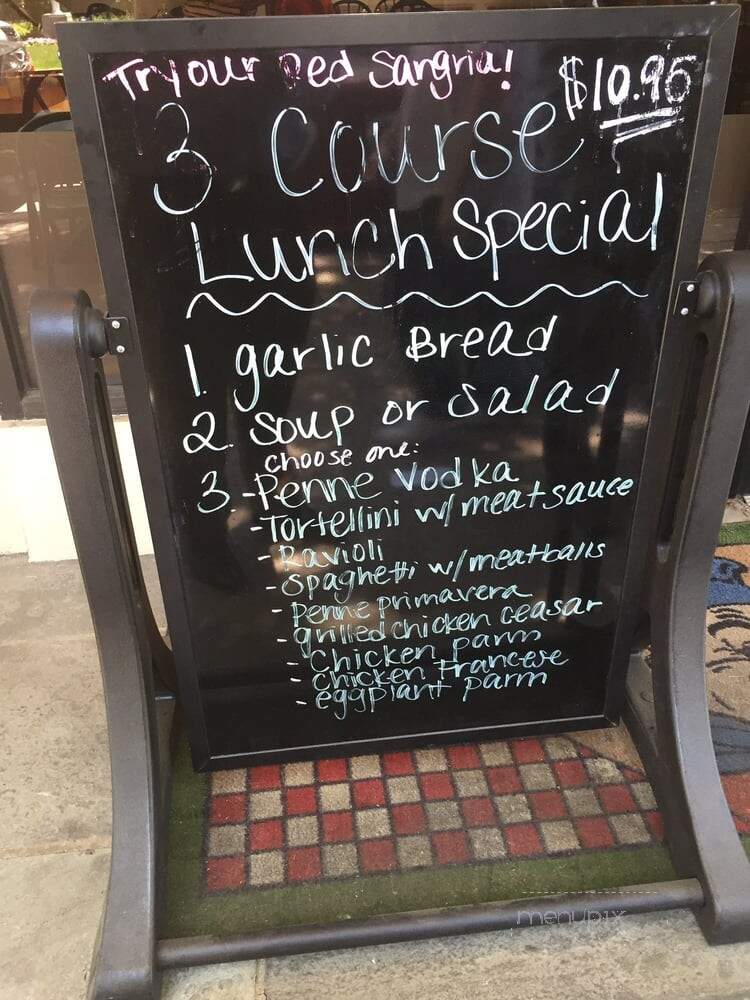 Try our Red Sangria!
$10.95
3 Course
Lunch Special
1. garlic Bread
2. Soup or Salad
choose one:
3. - Penne Vodka
- Tortellini w/ meat sauce
- Ravioli
- Spaghetti w/ meatballs
- Penne primavera
- grilled chicken ceasar
- Chicken parm
- Chicken Francese
- eggplant parm
menupix